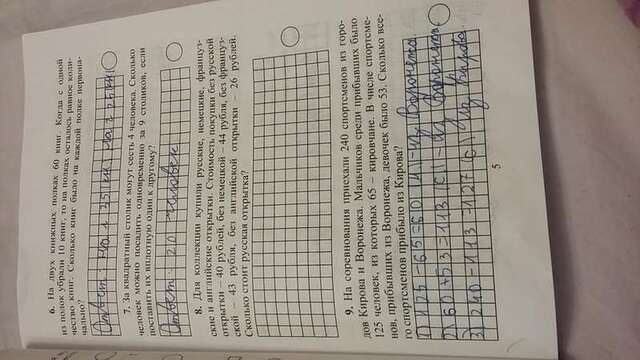 6. На двух книжных полках 60 книг. Когда с одной
из полок убрали 10 книг, то на полках осталось равное коли-
чество книг. Сколько книг было на каждой полке первона-
чально?
Ответ: на 1 35 (кн) на 2 25 (кн)
7. За квадратный столик могут сесть 4 человека. Сколько
человек можно посадить одновременно за 9 столиков, если
поставить их вплотную один к другому?
Ответ: 20 человек
8. Для коллекции купили русские, немецкие, француз-
ские и английские открытки. Стоимость покупки без русской
открытки – 40 рублей, без немецкой – 44 рубля, без француз-
ской – 43 рубля, без английской открытки 26 рублей.
Сколько стоит русская открытка?
9. На соревнования приехали 240 спортсменов из горо-
дов Кирова и Воронежа. Мальчиков среди прибывших было
125 человек, из которых 65 – кировчане. В числе спортсме-
нов, прибывших из Воронежа, девочек было 53. Сколько все-
го спортсменов прибыло из Кирова?
1) 125-65=60 (м)-из Воронежа
2) 60+53=113 (с)-из Воронежа
3) 240-113=127 (с) из Кирова
5